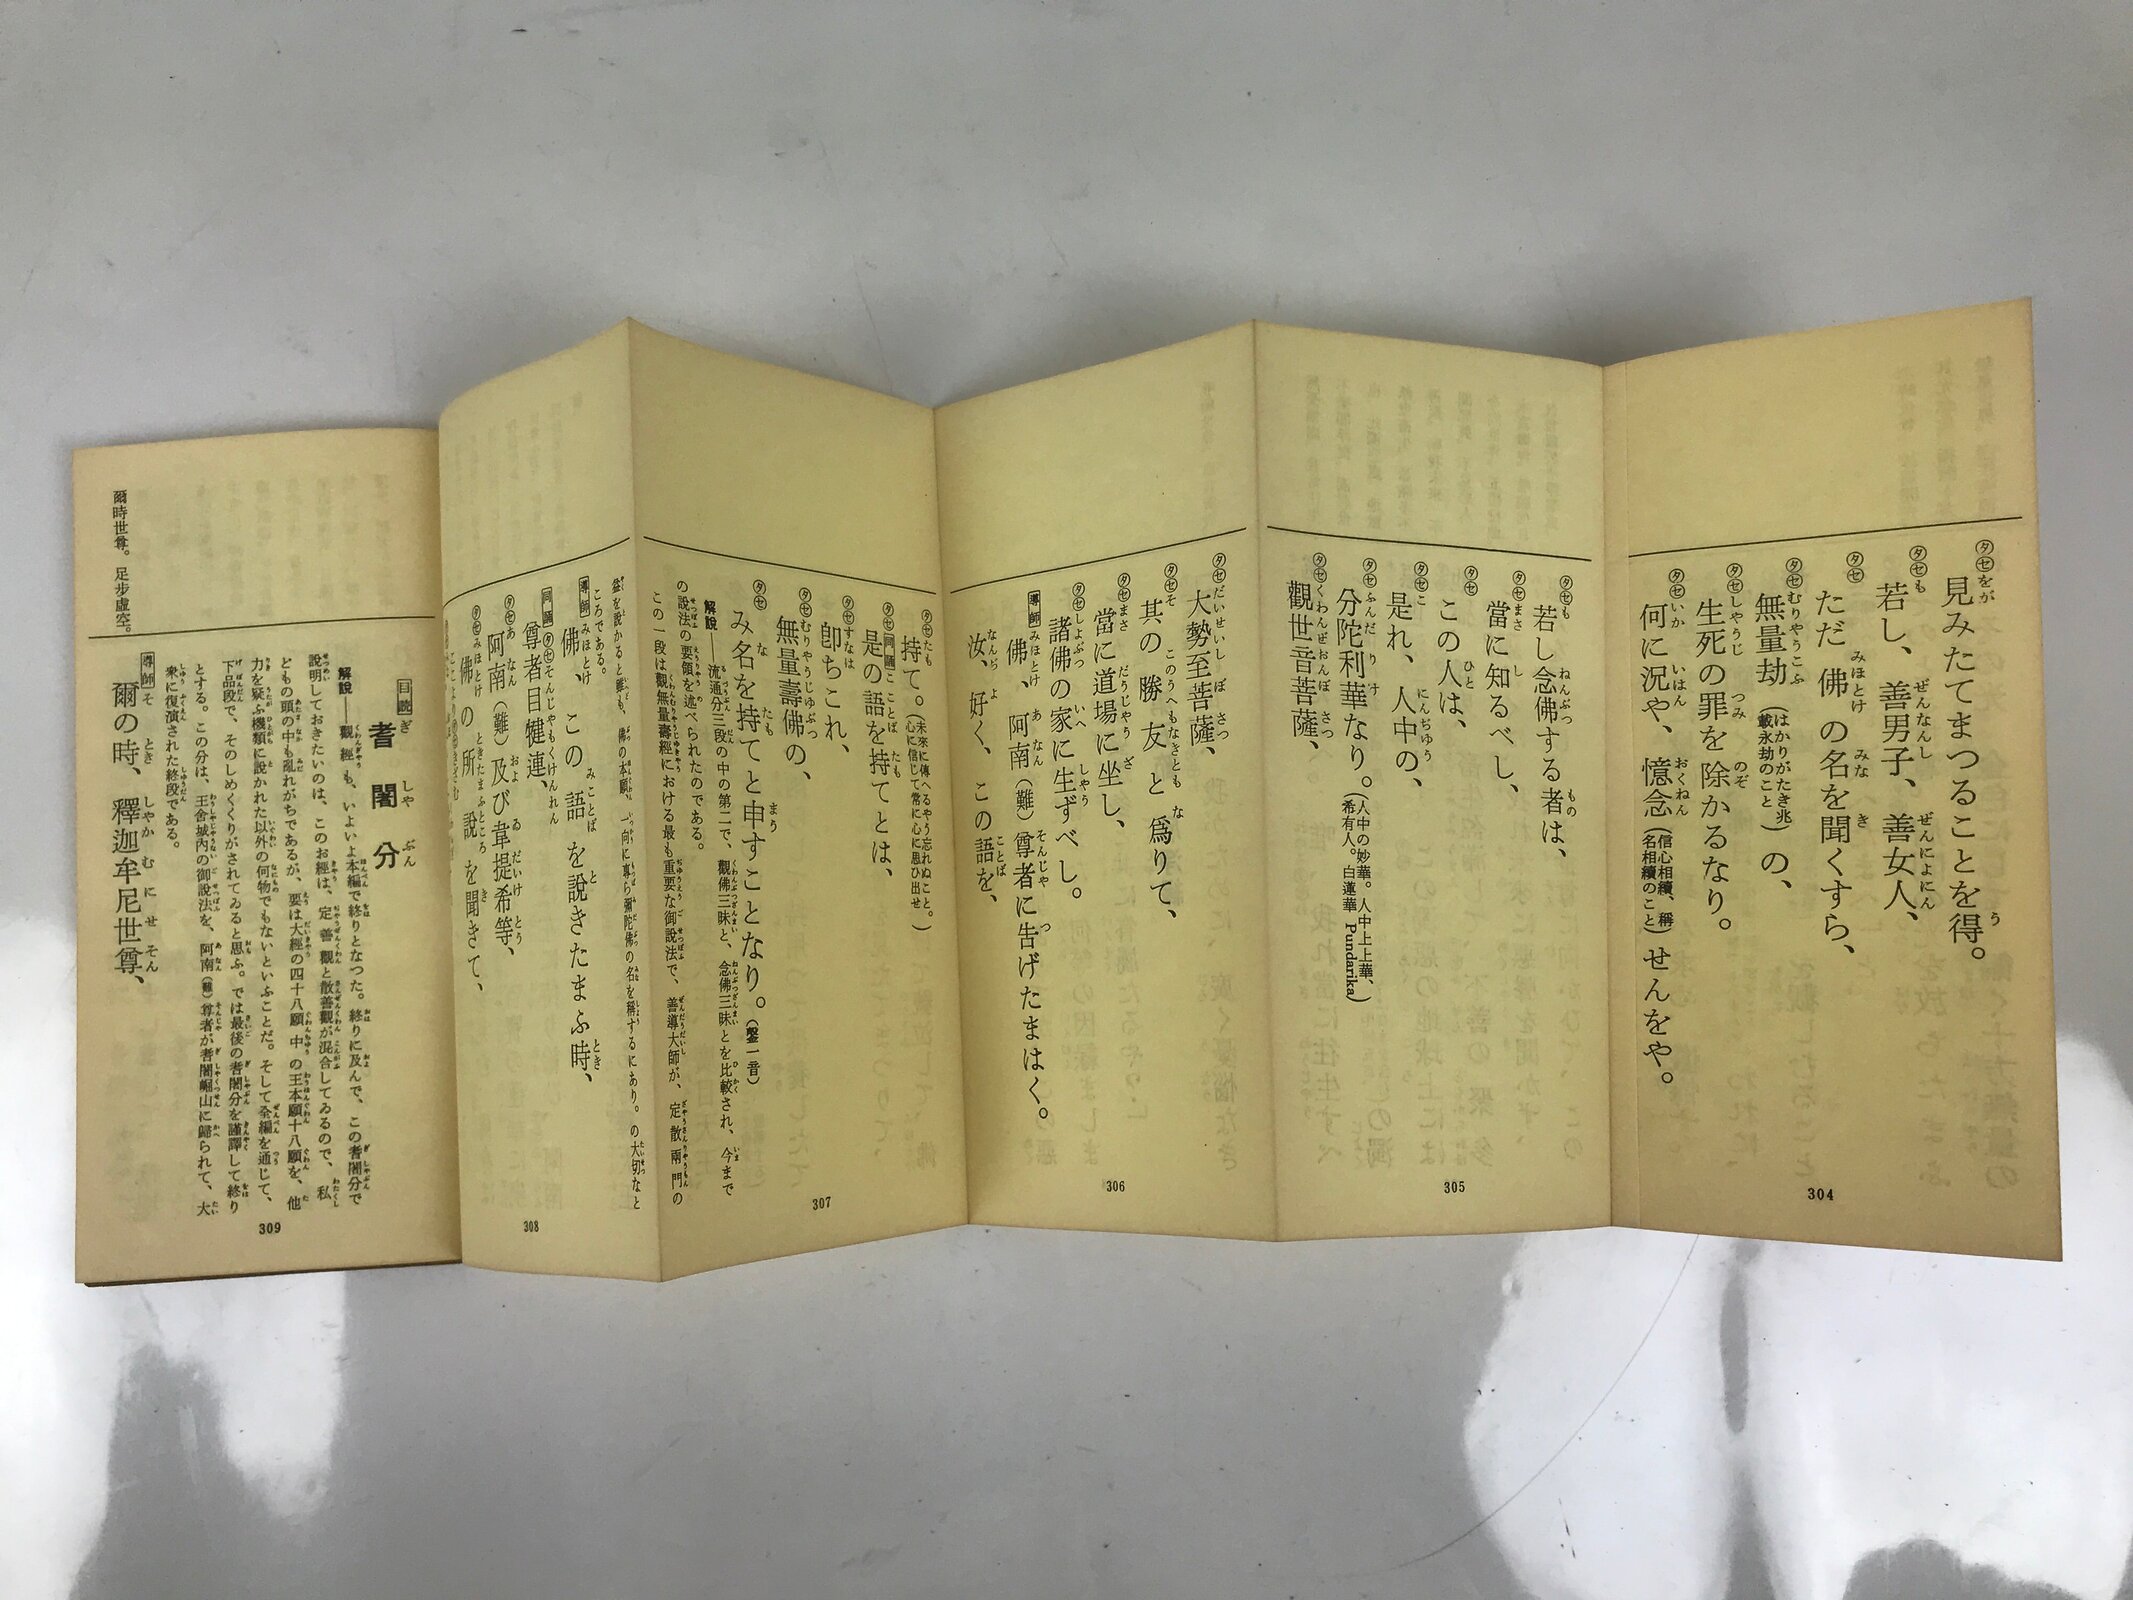 タセ 見みたてまつることを得。
タセ 若し、善男子、善女人、
タセ ただ佛の名を聞くすら、
タセ 無量劫(はかりがたき兆載永劫のこと)の、
タセ 生死の罪を除かるなり。
タセ 何に況や、憶念(信心相續、稱名相續のこと)せんをや。
304
タセ 若し念佛する者は、
タセ 當に知るべし、
タセ この人は、
タセ 是れ、人中の、
タセ 分陀利華なり。(人中の妙華。人中上上華、希有人。白蓮華 Pundarika)
タセ 觀世音菩薩、
305
タセ 大勢至菩薩、
タセ 其の勝友と爲りて、
タセ 當に道場に坐し、
タセ 諸佛の家に生ずべし。
導師 佛、阿南(難)尊者に告げたまはく。
汝、好く、この語を、
306
タセ 持て。(未來に傳へるやう忘れぬこと。心に信じて常に心に思ひ出せ)
タセ 同誦 是の語を持てとは、
タセ 卽ちこれ、
タセ 無量壽佛の、
タセ み名を持てと申すことなり。(鏧一音)
解說――流通分三段の中の第二で、觀佛三昧と、念佛三昧とを比較され、今まで
の說法の要領を述べられたのである。
この一段は觀無量壽經における最も重要な御說法で、善導大師が、定散兩門の
307
益を說かると雖も、佛の本願、一向に專ら彌陀佛の名を稱するにあり。の大切なと
ころである。
導師 佛、この語を說きたまふ時、
同誦 タセ 尊者目犍連、
タセ 阿南(難)及び韋提希等、
タセ 佛の所說を聞きて、
308
目読
耆闍分
解說――觀經も、いよいよ本編で終りとなつた。終りに及んで、この耆闍分で
說明しておきたいのは、このお經は、定善觀と散善觀が混合してゐるので、私
どもの頭の中も亂れがちであるが、要は大經の四十八願中の王本願十八願を、他
力を疑ふ機類に說かれた以外の何物でもないといふことだ。そして全編を通じて、
下品段で、そのしめくくりがされてゐると思ふ。では最後の耆闍分を謹譯して終り
とする。この分は、王舍城內の御說法を、阿南(難)尊者が耆闍崛山に歸られて、大
衆に復演された終段である。
爾時世尊。足步虛空。
導師 爾の時、釋迦牟尼世尊、
309